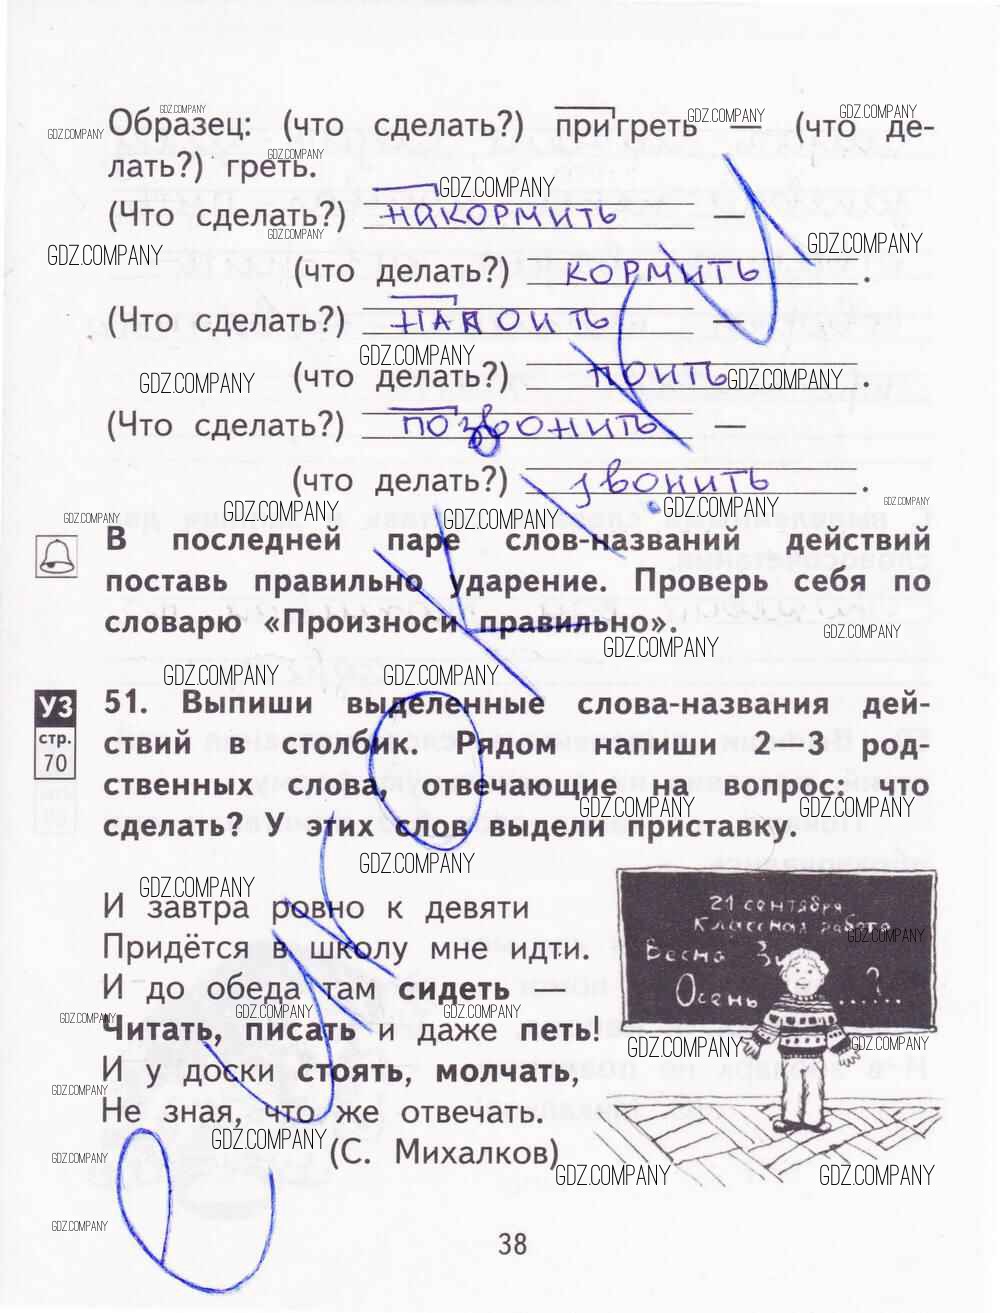 Образец: (что сделать?) пригреть — (что де-
лать?) греть.
(Что сделать?) накормить —
(что делать?) кормить.
(Что сделать?) напоить —
(что делать?) поить.
(Что сделать?) позвонить —
(что делать?) звонить.
В последней паре слов-названий действий
поставь правильно ударение. Проверь себя по
словарю «Произноси правильно».
УЗ
стр.
70
51. Выпиши выделенные слова-названия дей-
ствий в столбик. Рядом напиши 2–3 род-
ственных слова, отвечающие на вопрос: что
сделать? У этих слов выдели приставку.
И завтра ровно к девяти
Придётся в школу мне идти.
И до обеда там сидеть –
Читать, писать и даже петь!
И у доски стоять, молчать,
Не зная, что же отвечать.
(С. Михалков)
21 сентября
Классная работа
Весна Зи
Осень ....?
38
GDZ.COMPANY